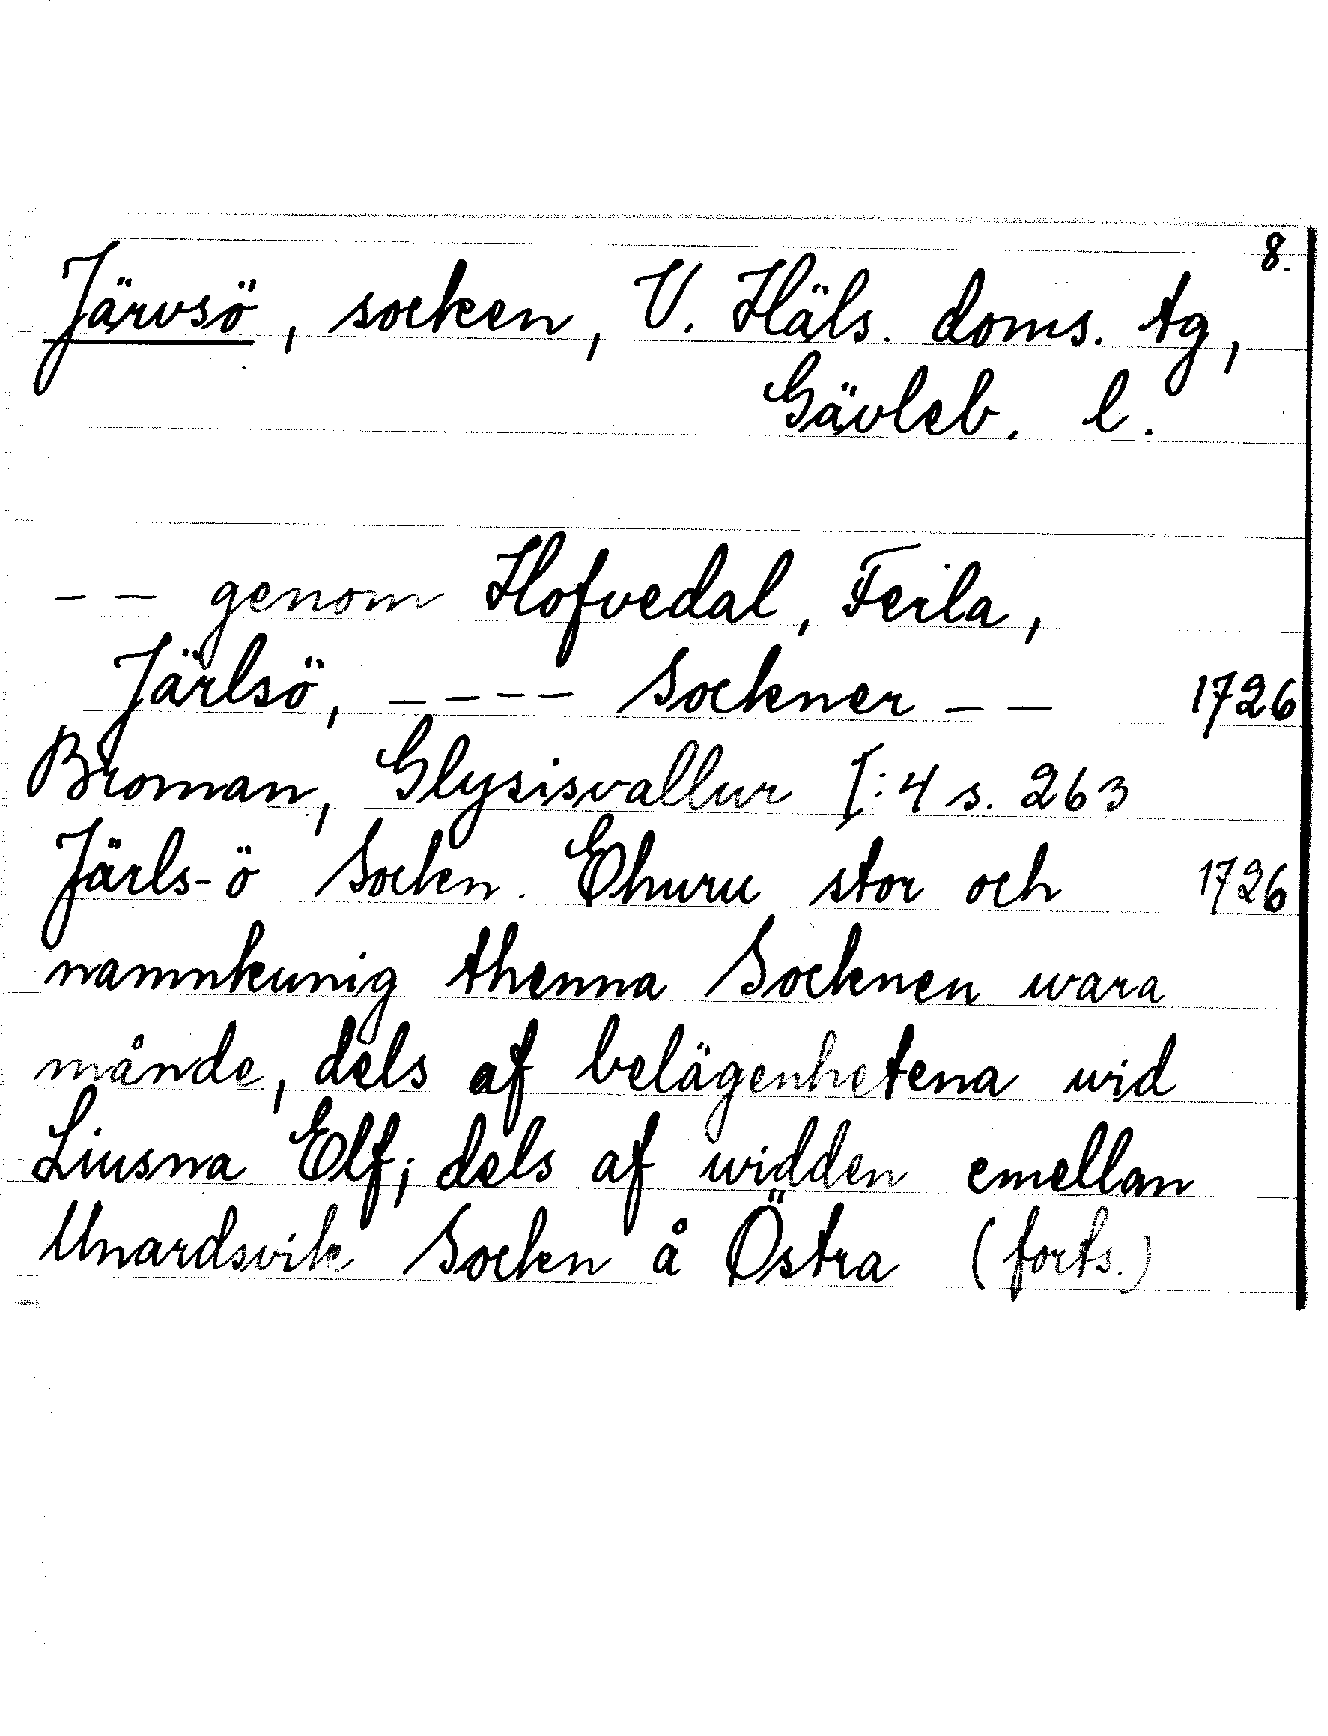 8.
Järvsö, socken, V. Häls. doms. tg,
Gävleb. l.
-- genom Hofvedal, Feila,
Järlsö, ---- Sockner -- 1726
Broman, Glysisvallur I:4 s. 263
Järls-ö Sockn. Ehuru stor och 1726
namnkunig thenna Socknen wara
månde, dels af belägenhetena wid
Liusna Elf; dels af widden emellan
Unardsvik Sockn å Östra (forts.)